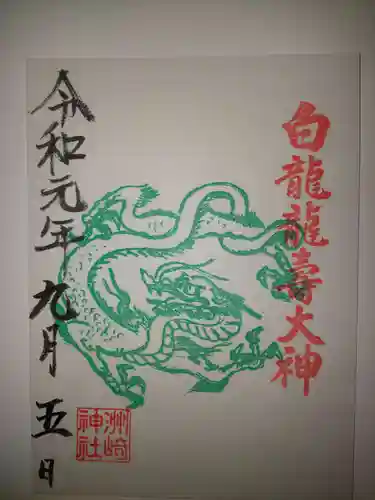 白龍龍壽大神
令和元年九月五日
洲崎神社